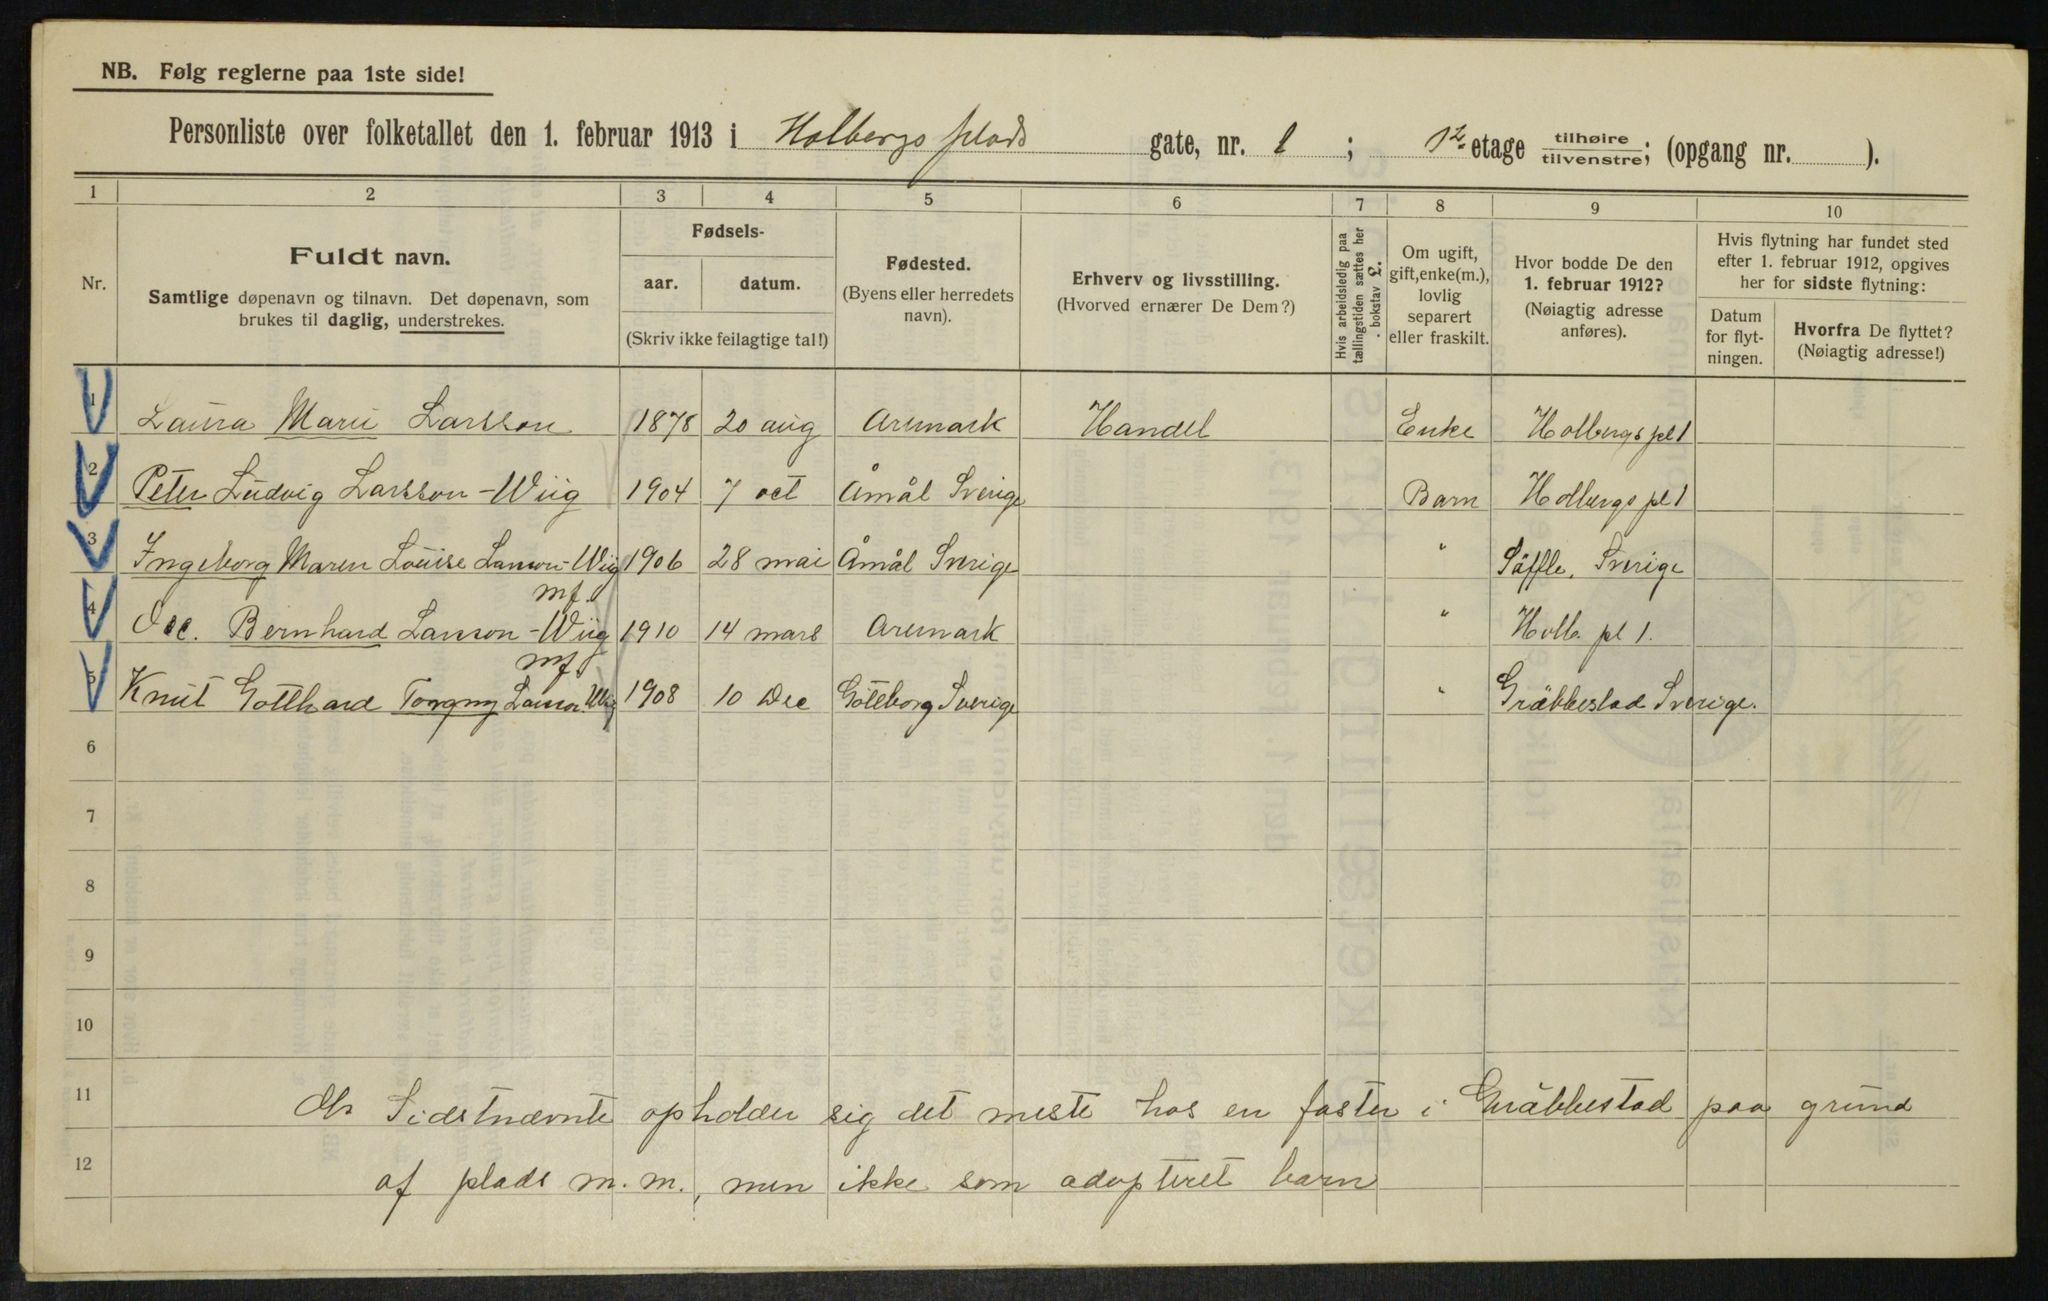 NB. Følg reglerne paa 1ste side!
Personliste over folketallet den 1. februar 1913 i Holbergs plads gate, nr. 1; 1ste etage tilhøire tilvenstre; (opgang nr. ).
1 2 3 4 5 6 7 8 9 10
Nr.
Fuldt navn.
Samtlige døpenavn og tilnavn. Det døpenavn, som
brukes til daglig, understrekes.
Fødsels-
aar. datum.
(Skriv ikke feilagtige tal!)
Fødested.
(Byens eller herredets
navn).
Erhverv og livsstilling.
(Hvorved ernærer De Dem?)
Hvis arbeidsledig paa
tællingstiden sættes her
bokstav L.
Om ugift,
gift, enke(m.),
lovlig
separert
eller fraskilt.
Hvor bodde De den
1. februar 1912?
(Nøiagtig adresse
anføres).
Hvis flytning har fundet sted
efter 1. februar 1912, opgives
her for sidste flytning:
Datum
for flyt-
ningen.
Hvorfra De flyttet?
(Nøiagtig adresse!)
1 Laura Marie Larsson 1878 20 aug Aremark Handel Enke Holbergs pl 1
2 Peter Ludvig Larsson-Wiig 1904 7 oct Åmål Sverige Barn Holbergs pl 1
3 Ingeborg Maren Louise Larsson-Wiig 1906 28 mai Åmål Sverige " Säffle, Sverige
mf.
4 Osc. Bernhard Larsson-Wiig 1910 14 mars Aremark " Holb. pl 1.
mf
5 Knut Gotthard Torgny Larsson-Wiig 1908 10 Dec Göteborg Sverige " Gräbbestad Sverige.
6
7
8
9
10
11 Sidstnævnte opholder sig det meste hos en faster i Gräbbestad paa grund
12 af plads m.m., men ikke som adopteret barn